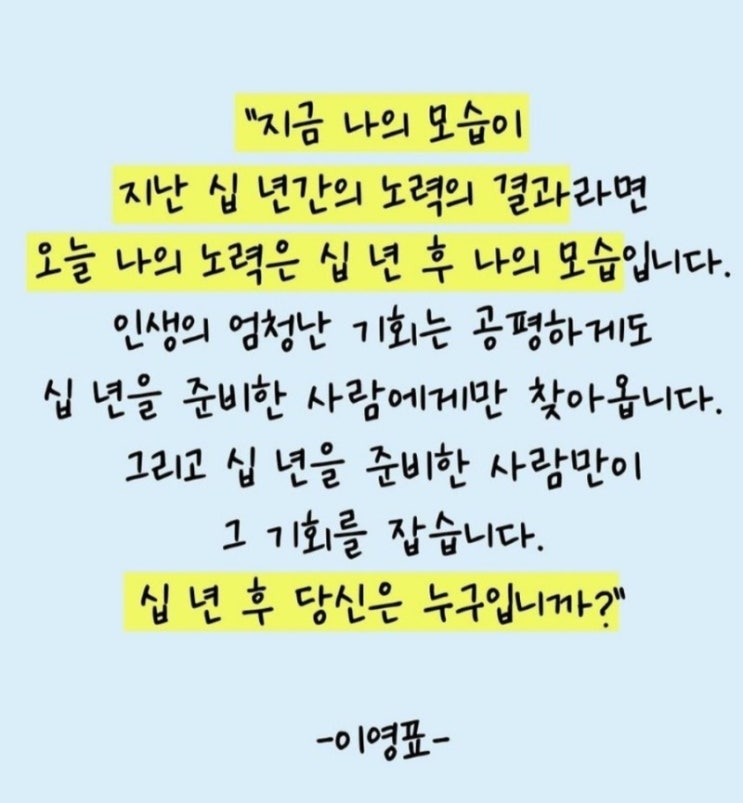 "지금 나의 모습이
지난 십 년간의 노력의 결과라면
오늘 나의 노력은 십 년 후 나의 모습입니다.
인생의 엄청난 기회는 공평하게도
십 년을 준비한 사람에게만 찾아옵니다.
그리고 십 년을 준비한 사람만이
그 기회를 잡습니다.
십 년 후 당신은 누구입니까?"
-이영표-